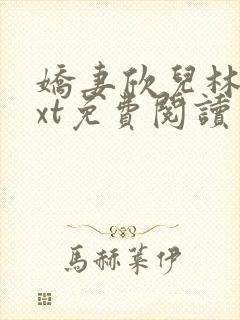 嬌妻欣兒林
xt免費閱讀
馬赫葉伊